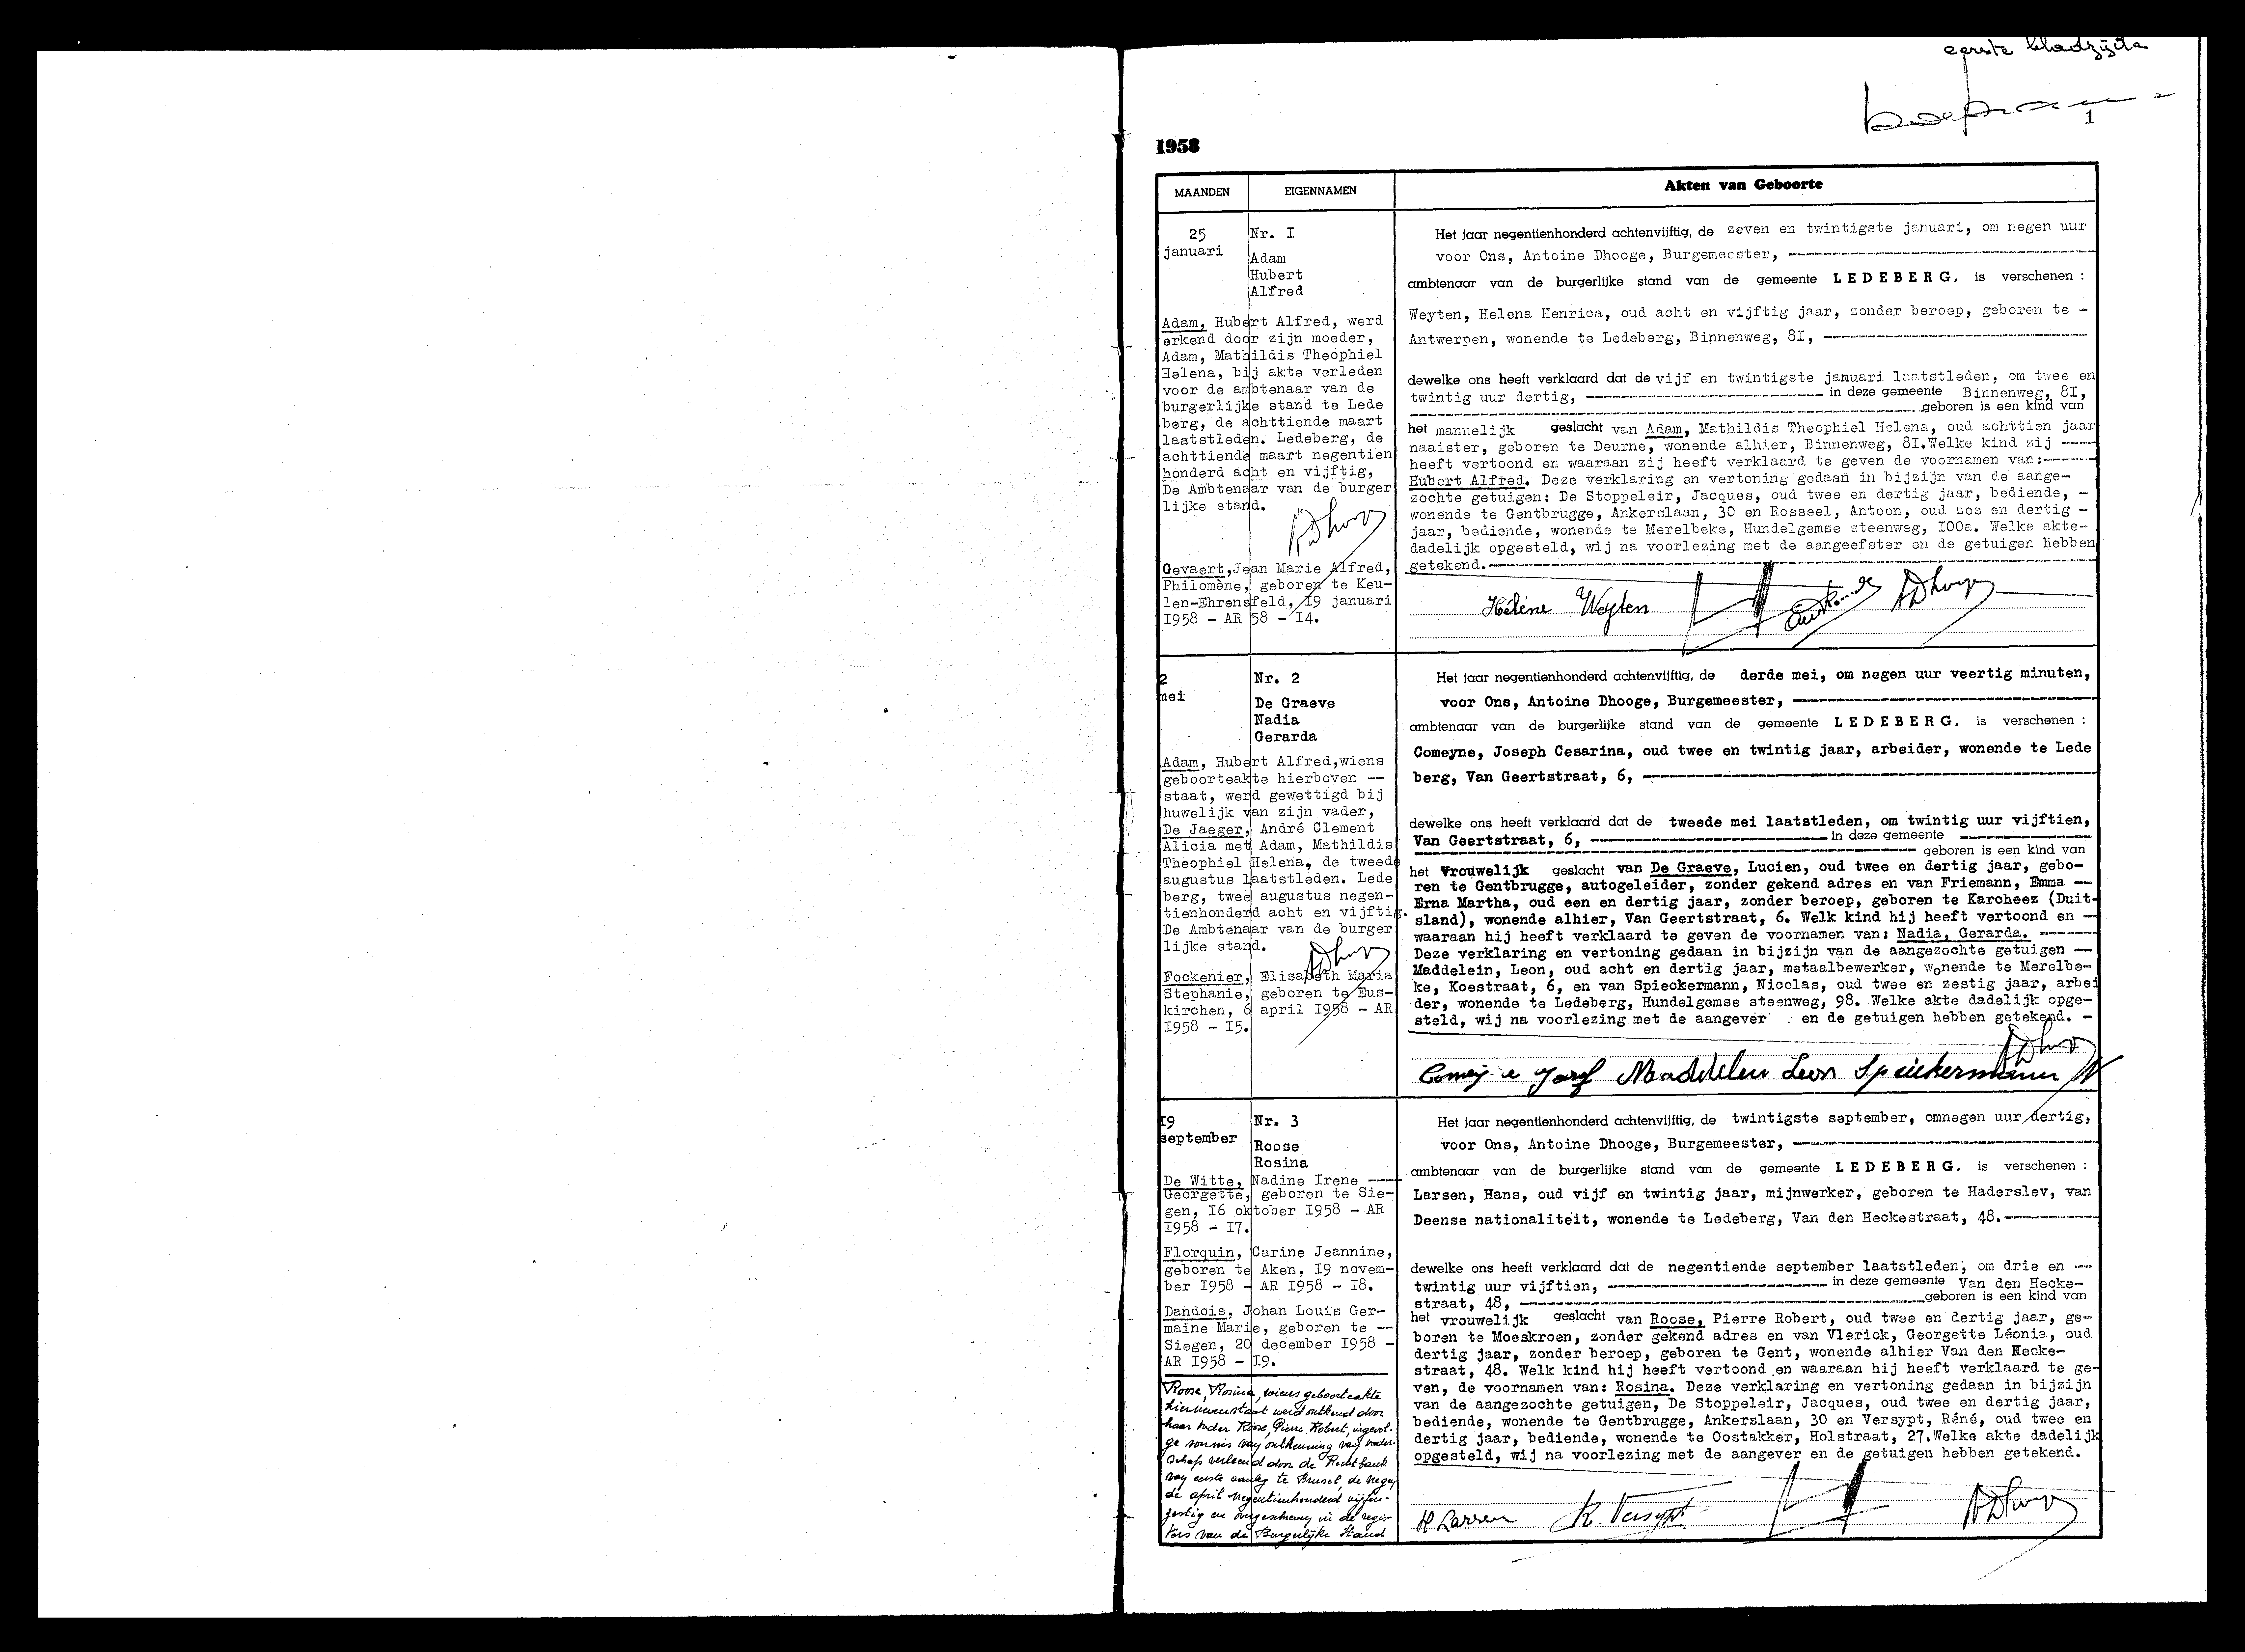 eerste bladzijde
1
1958
MAANDEN
EIGENNAMEN
Akten van Geboorte
25
januari
Nr. I
Adam
Hubert
Alfred
Adam, Hubert Alfred, werd
erkend door zijn moeder,
Adam, Mathildis Theophiel
Helena, bij akte verleden
voor de ambtenaar van de
burgerlijke stand te Lede
berg, de achttiende maart
laatstleden. Ledeberg, de
achttiende maart negentien
honderd acht en vijftig,
De Ambtenaar van de burger
lijke stand.
ADhooge
Gevaert,Jean Marie Alfred,
Philomène, geboren te Keu-
len-Ehrensfeld, I9 januari
I958 - AR 58 - I4.
Het jaar negentienhonderd achtenvijftig, de zeven en twintigste januari, om negen uur
voor Ons, Antoine Dhooge, Burgemeester, ----------
ambtenaar van de burgerlijke stand van de gemeente LEDEBERG, is verschenen :
Weyten, Helena Henrica, oud acht en vijftig jaar, zonder beroep, geboren te -
Antwerpen, wonende te Ledeberg, Binnenweg, 8I, ----------
dewelke ons heeft verklaard dat de vijf en twintigste januari laatstleden, om twee en
twintig uur dertig, ---------- in deze gemeente Binnenweg, 8I,
---------- geboren is een kind van
het mannelijk geslacht van Adam, Mathildis Theophiel Helena, oud achttien jaar
naaister, geboren te Deurne, wonende alhier, Binnenweg, 8I.Welke kind zij ----
heeft vertoond en waaraan zij heeft verklaard te geven de voornamen van:------
Hubert Alfred. Deze verklaring en vertoning gedaan in bijzijn van de aange-
zochte getuigen: De Stoppeleir, Jacques, oud twee en dertig jaar, bediende, -
wonende te Gentbrugge, Ankerslaan, 30 en Rosseel, Antoon, oud zes en dertig -
jaar, bediende, wonende te Merelbeke, Hundelgemse steenweg, I00a. Welke akte-
dadelijk opgesteld, wij na voorlezing met de aangeefster en de getuigen hebben
getekend.----------
Hélène Weyten ADhooge
2
mei
Nr. 2
De Graeve
Nadia
Gerarda
Adam, Hubert Alfred,wiens
geboorteakte hierboven --
staat, werd gewettigd bij
huwelijk van zijn vader,
De Jaeger, André Clement
Alicia met Adam, Mathildis
Theophiel Helena, de tweede
augustus laatstleden. Lede
berg, twee augustus negen-
tienhonderd acht en vijftig.
De Ambtenaar van de burger
lijke stand.
ADhooge
Fockenier, Elisabeth Maria
Stephanie, geboren te Eus-
kirchen, 6 april I958 - AR
I958 - I5.
Het jaar negentienhonderd achtenvijftig, de derde mei, om negen uur veertig minuten,
voor Ons, Antoine Dhooge, Burgemeester, ----------
ambtenaar van de burgerlijke stand van de gemeente LEDEBERG, is verschenen :
Comeyne, Joseph Cesarina, oud twee en twintig jaar, arbeider, wonende te Lede
berg, Van Geertstraat, 6, ----------
dewelke ons heeft verklaard dat de tweede mei laatstleden, om twintig uur vijftien,
Van Geertstraat, 6, ---------- in deze gemeente ----------
---------- geboren is een kind van
het vrouwelijk geslacht van De Graeve, Lucien, oud twee en dertig jaar, gebo-
ren te Gentbrugge, autogeleider, zonder gekend adres en van Friemann, Emma --
Erna Martha, oud een en dertig jaar, zonder beroep, geboren te Karcheez (Duit-
sland), wonende alhier, Van Geertstraat, 6. Welk kind hij heeft vertoond en --
waaraan hij heeft verklaard te geven de voornamen van: Nadia, Gerarda. ------
Deze verklaring en vertoning gedaan in bijzijn van de aangezochte getuigen --
Maddelein, Leon, oud acht en dertig jaar, metaalbewerker, wonende te Merelbe-
ke, Koestraat, 6, en van Spieckermann, Nicolas, oud twee en zestig jaar, arbei
der, wonende te Ledeberg, Hundelgemse steenweg, 98. Welke akte dadelijk opge-
steld, wij na voorlezing met de aangever en de getuigen hebben getekend. -
ADhooge
Comeyne Josef Maddelein Leon Spieckermann N
I9
september
Nr. 3
Roose
Rosina
De Witte, Nadine Irene ---
Georgette, geboren te Sie-
gen, I6 oktober I958 - AR
I958 - I7.
Florquin, Carine Jeannine,
geboren te Aken, I9 novem-
ber I958 - AR I958 - I8.
Dandois, Johan Louis Ger-
maine Marie, geboren te --
Siegen, 20 december I958 -
AR I958 - I9.
Roose, Rosina, wiens geboorteakte
hiernevenstaat werd ontkend door
haar vader Roose, Pierre Robert, ingevol-
ge vonnis van ontkenning van vader-
schap verleend door de Rechtbank
van eerste aanleg te Brussel, de negen
de april negentienhonderd vijfen-
zestig en overgeschreven in de regis-
ters van de Burgerlijke Stand
Het jaar negentienhonderd achtenvijftig, de twintigste september, omnegen uur dertig,
voor Ons, Antoine Dhooge, Burgemeester, ----------
ambtenaar van de burgerlijke stand van de gemeente LEDEBERG, is verschenen :
Larsen, Hans, oud vijf en twintig jaar, mijnwerker, geboren te Haderslev, van
Deense nationaliteit, wonende te Ledeberg, Van den Heckestraat, 48.----------
dewelke ons heeft verklaard dat de negentiende september laatstleden, om drie en --
twintig uur vijftien, ---------- in deze gemeente Van den Hecke-
straat, 48, ---------- geboren is een kind van
het vrouwelijk geslacht van Roose, Pierre Robert, oud twee en dertig jaar, ge-
boren te Moeskroen, zonder gekend adres en van Vlerick, Georgette Léonia, oud
dertig jaar, zonder beroep, geboren te Gent, wonende alhier Van den Hecke-
straat, 48. Welk kind hij heeft vertoond en waaraan hij heeft verklaard te ge-
ven, de voornamen van: Rosina. Deze verklaring en vertoning gedaan in bijzijn
van de aangezochte getuigen, De Stoppeleir, Jacques, oud twee en dertig jaar,
bediende, wonende te Gentbrugge, Ankerslaan, 30 en Versypt, Réné, oud twee en
dertig jaar, bediende, wonende te Oostakker, Holstraat, 27.Welke akte dadelijk
opgesteld, wij na voorlezing met de aangever en de getuigen hebben getekend.
H Larsen R. Versypt ADhooge